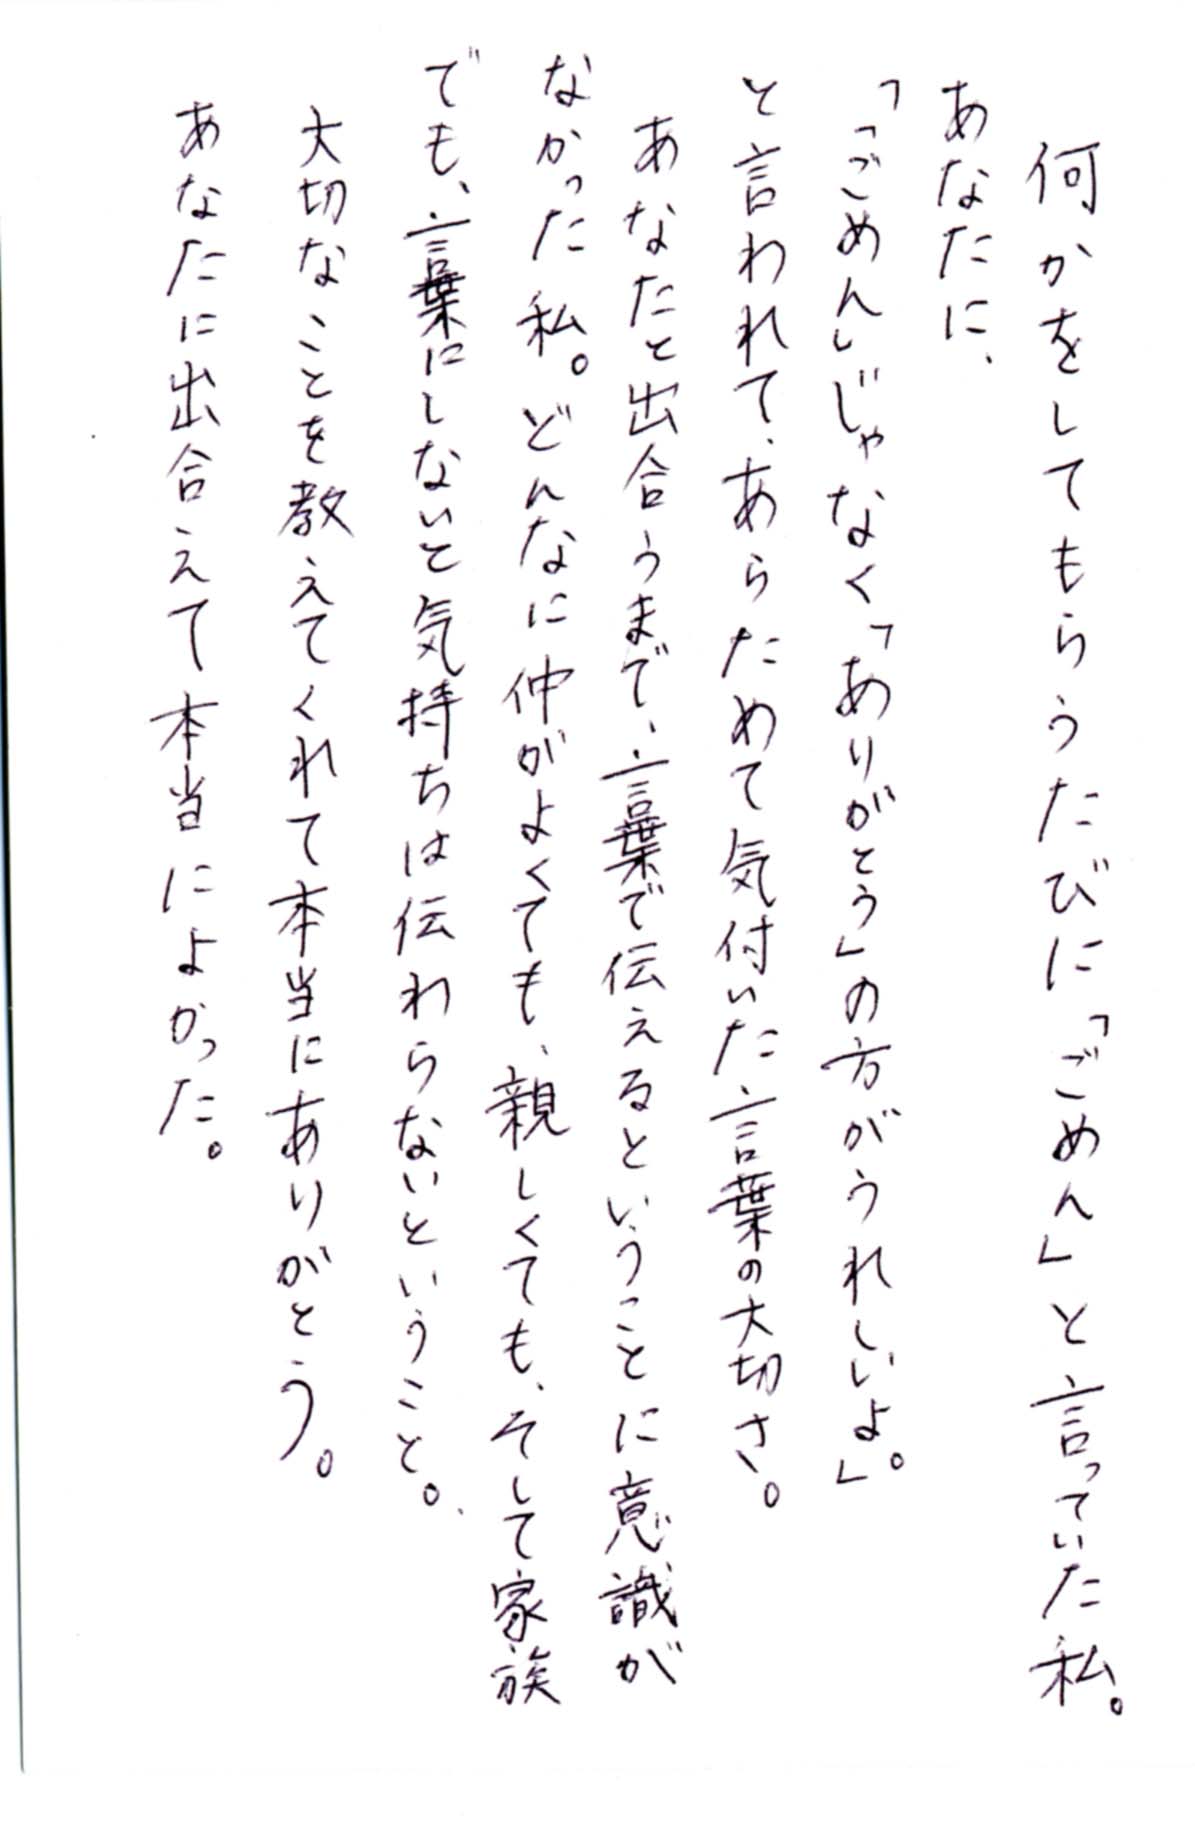 何かをしてもらうたびに「ごめん」と言っていた私。
あなたに、
「「ごめん」じゃなく「ありがとう」の方がうれしいよ。」
と言われて、あらためて気付いた言葉の大切さ。
あなたと出合うまで、言葉で伝えるということに意識が
なかった私。どんなに仲がよくても、親しくても、そして家族
でも、言葉にしないと気持ちは伝わらないということ。
大切なことを教えてくれて本当にありがとう。
あなたに出合えて本当によかった。